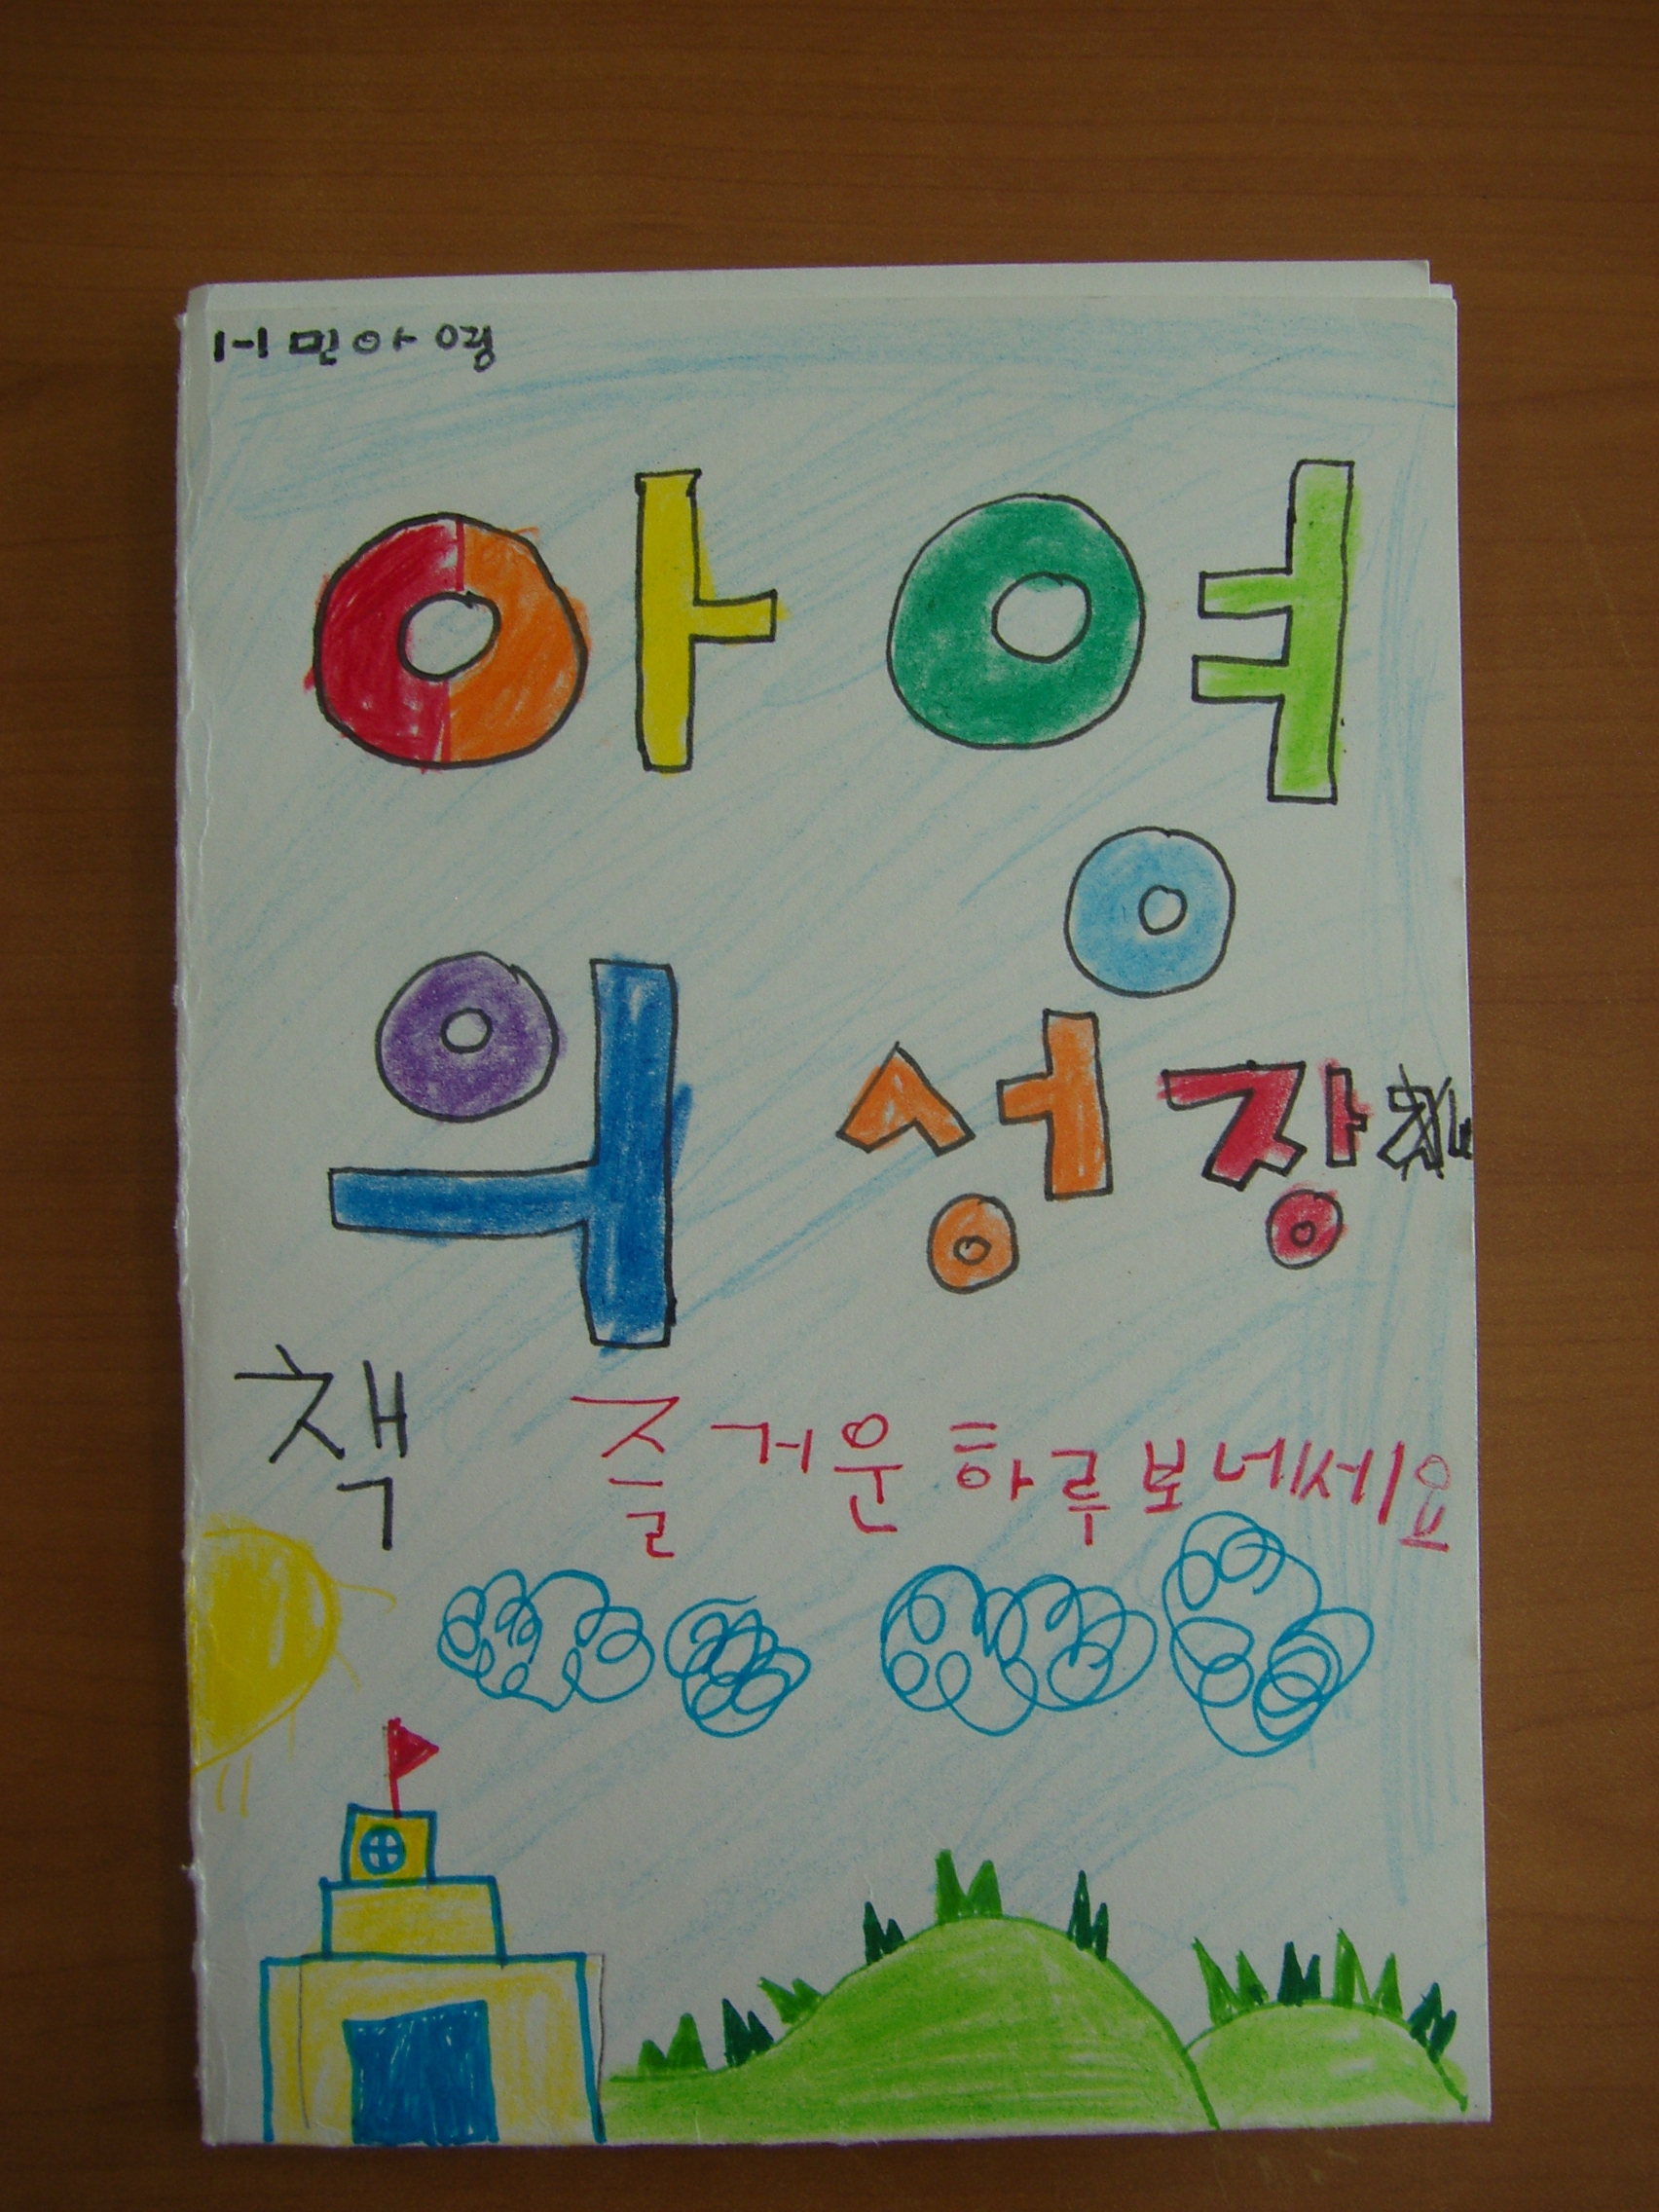 1-1 민아영
아영
의 성장
책 즐거운 하루 보네세요